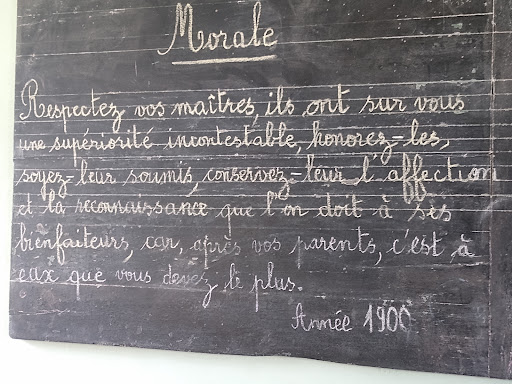 Morale
Respectez vos maîtres, ils ont sur vous
une supériorité incontestable, honorez-les,
soyez-leur soumis, conservez-leur l'affection
et la reconnaissance que l'on doit à ses
bienfaiteurs, car, après vos parents, c'est à
eux que vous devez le plus.
Année 1900